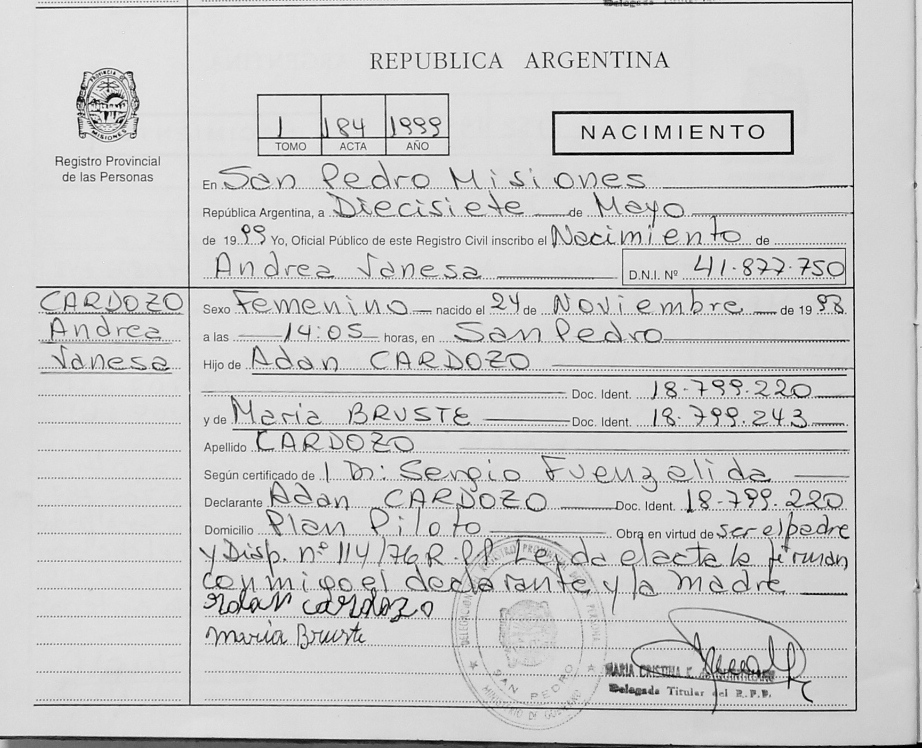 Delegada Titular
REPUBLICA ARGENTINA
PROVINCIA DE
MISIONES
Registro Provincial
de las Personas
1 184 1999
TOMO ACTA AÑO
NACIMIENTO
En San Pedro Misiones
República Argentina, a Diecisiete de Mayo
de 1999 Yo, Oficial Público de este Registro Civil inscribo el Nacimiento de
Andrea Vanesa D.N.I. Nº 41.877.750
CARDOZO
Andrea
Vanesa
Sexo Femenino nacido el 24 de Noviembre de 1998
a las 14:05 horas, en San Pedro
Hijo de Adan CARDOZO
Doc. Ident. 18.799.220
y de Maria BRUSTE Doc. Ident. 18.799.243
Apellido CARDOZO
Según certificado de Dr: Sergio Fuenzalida
Declarante Adan CARDOZO Doc. Ident. 18-799.220
Domicilio Plan Piloto Obra en virtud de ser el padre
y Disp. nº 114/76 R.PP. Leida el acta la firman
conmigo el declarante y la madre
adan cardozo
maria Bruste
SAN PEDRO
MARIA CRISTINA
Delegada Titular del R.P.P.